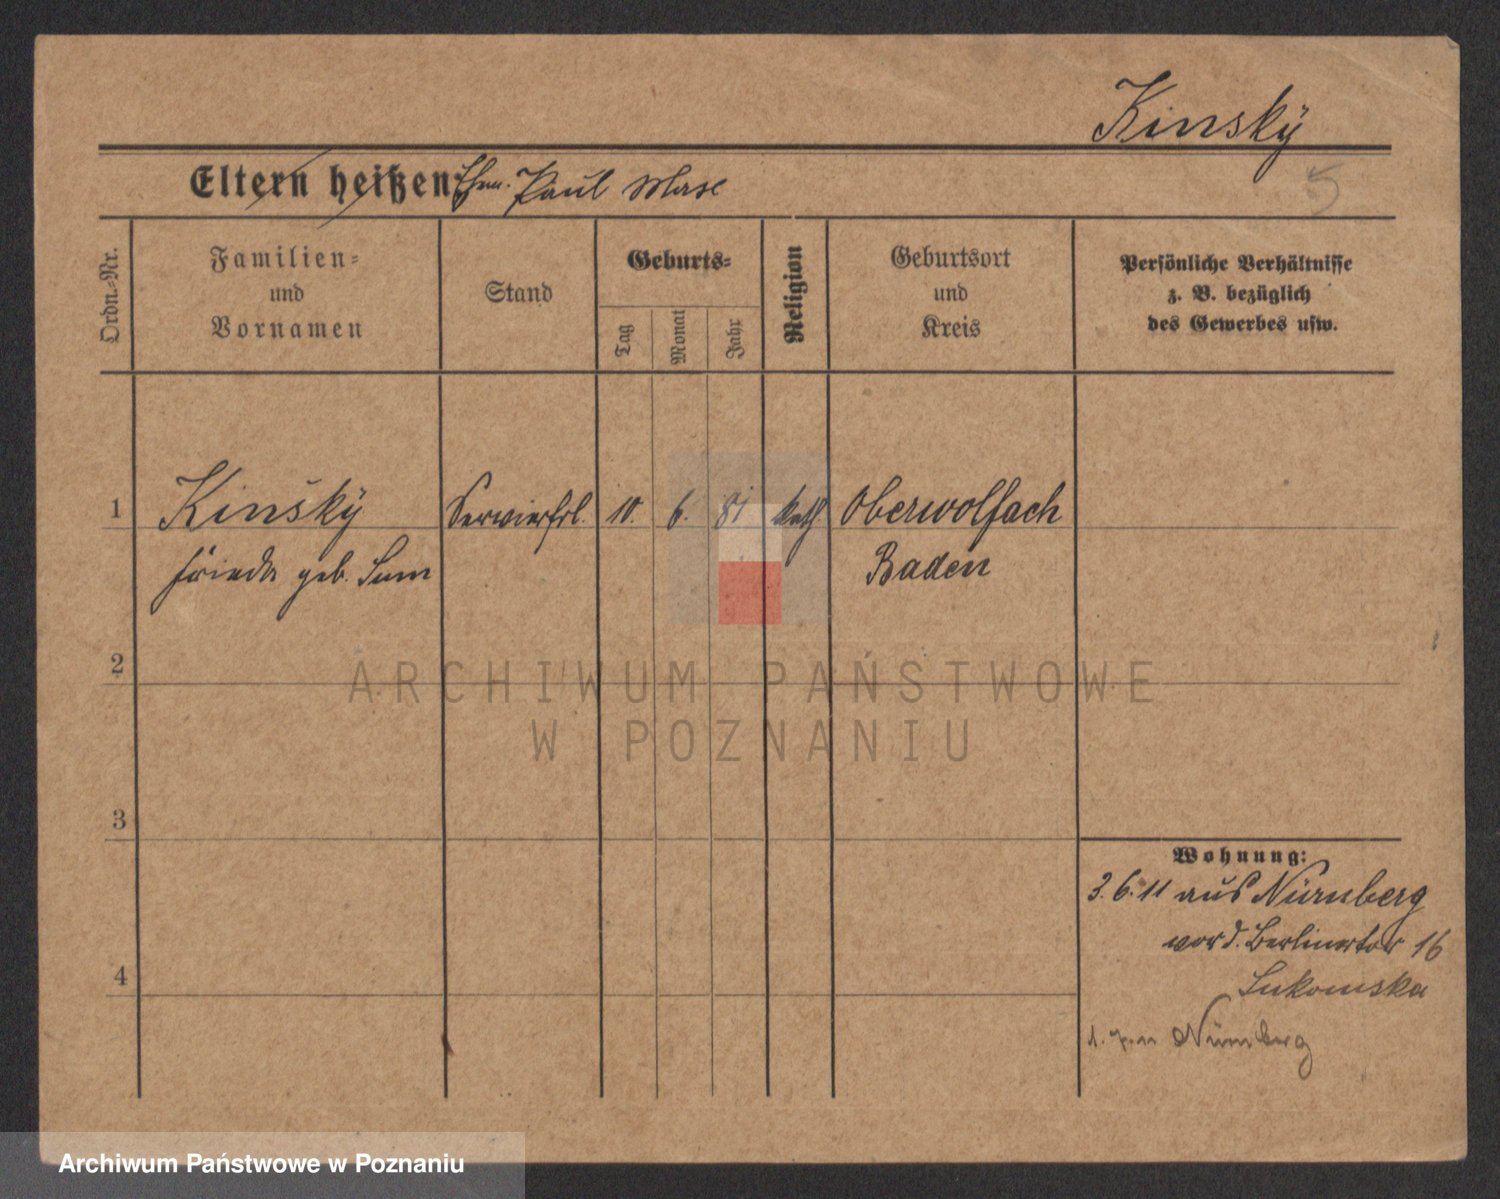 Kinsky
Eltern heißen: Ehm. Paul
Ordn.-Nr.
Familien-
und
Vornamen
Stand
Geburts-
Tag
Monat
Jahr
Religion
Geburtsort
und
Kreis
Persönliche Verhältnisse
z. B. bezüglich
des Gewerbes usw.
1
Kinský Servierfrl. 10. 6. 81 kath. Oberwolfach
Frieda geb. Sum Baden
2
ARCHIWUM PAŃSTWOWE
W POZNANIU
3
Wohnung:
3.6.11 aus Nürnberg
vor d. Berlinertor 16
4
Lukomska
1. 7. 11 Nürnberg
Archiwum Państwowe w Poznaniu